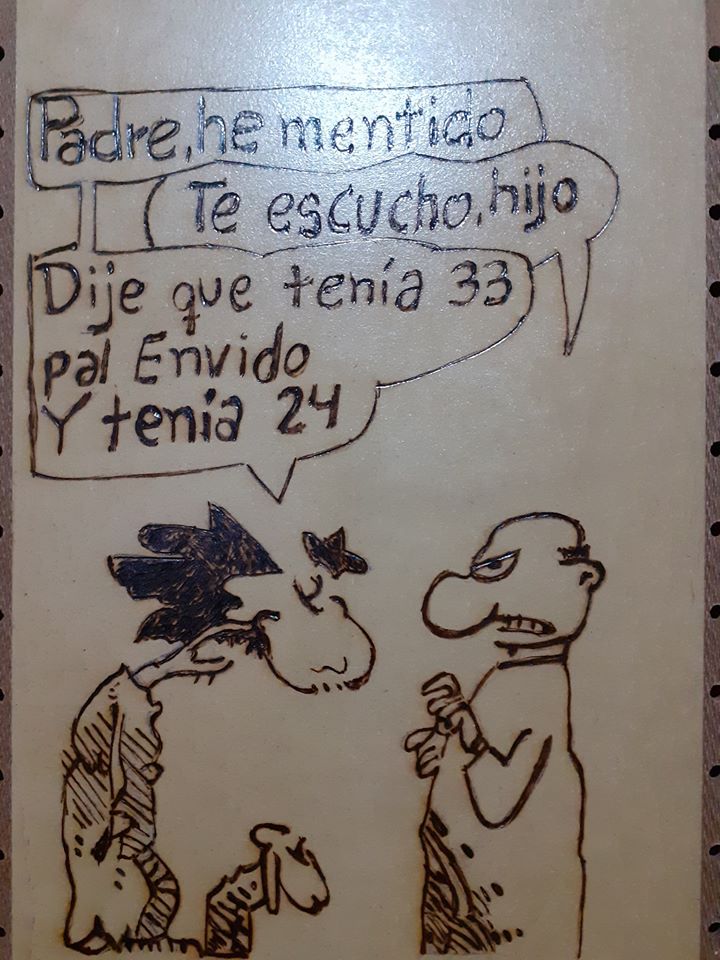 Padre, he mentido
Te escucho, hijo
Dije que tenía 33
pal Envido
Y tenía 24